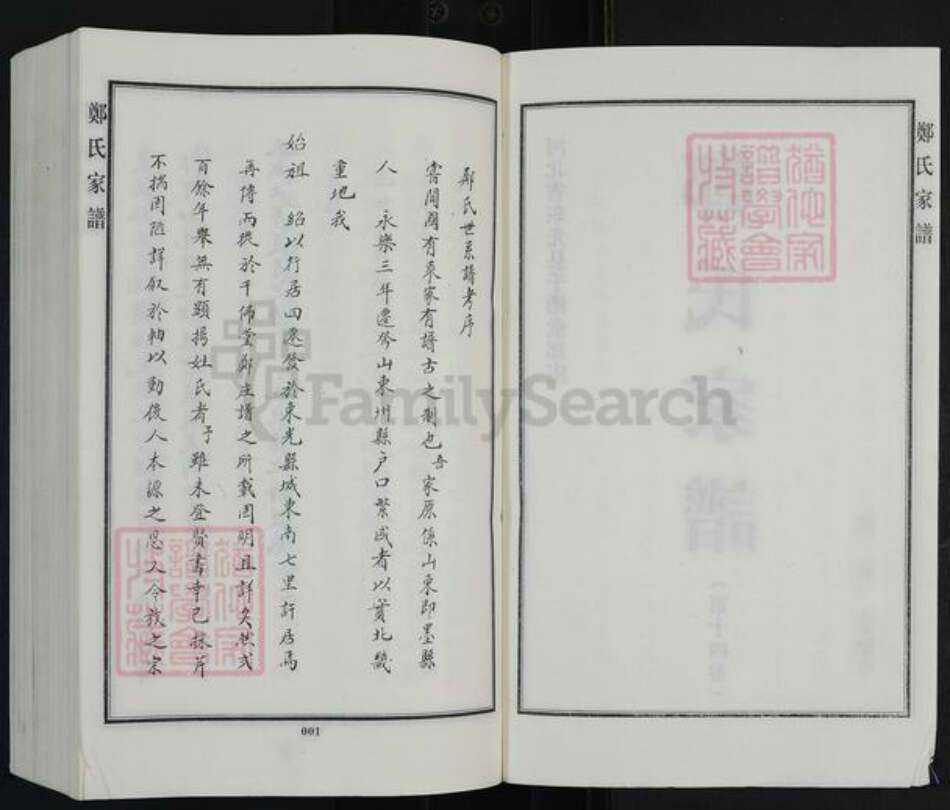 鄭氏家譜
鄭氏世系譜考序
嘗聞國有乘家有譜古之制也吾家原係山東即墨縣
人 永樂三年遷岺山東州縣户口繁盛者以實北畿
重地我
始祖 紹以行居四遷發於東光縣城東南七里許居焉
再傳而從於千佛堂鄭庄墳之所載固明且詳矣然弍
百餘年舉無有顕揚姓氏者予雖未登賢書幸已採芹
不揣固陋詳叙於軸以動後人本源之思久今族之宗
001
鄭氏家譜
氏家譜
猶他家譜學會收藏
猶他家譜學會收藏
FamilySearch